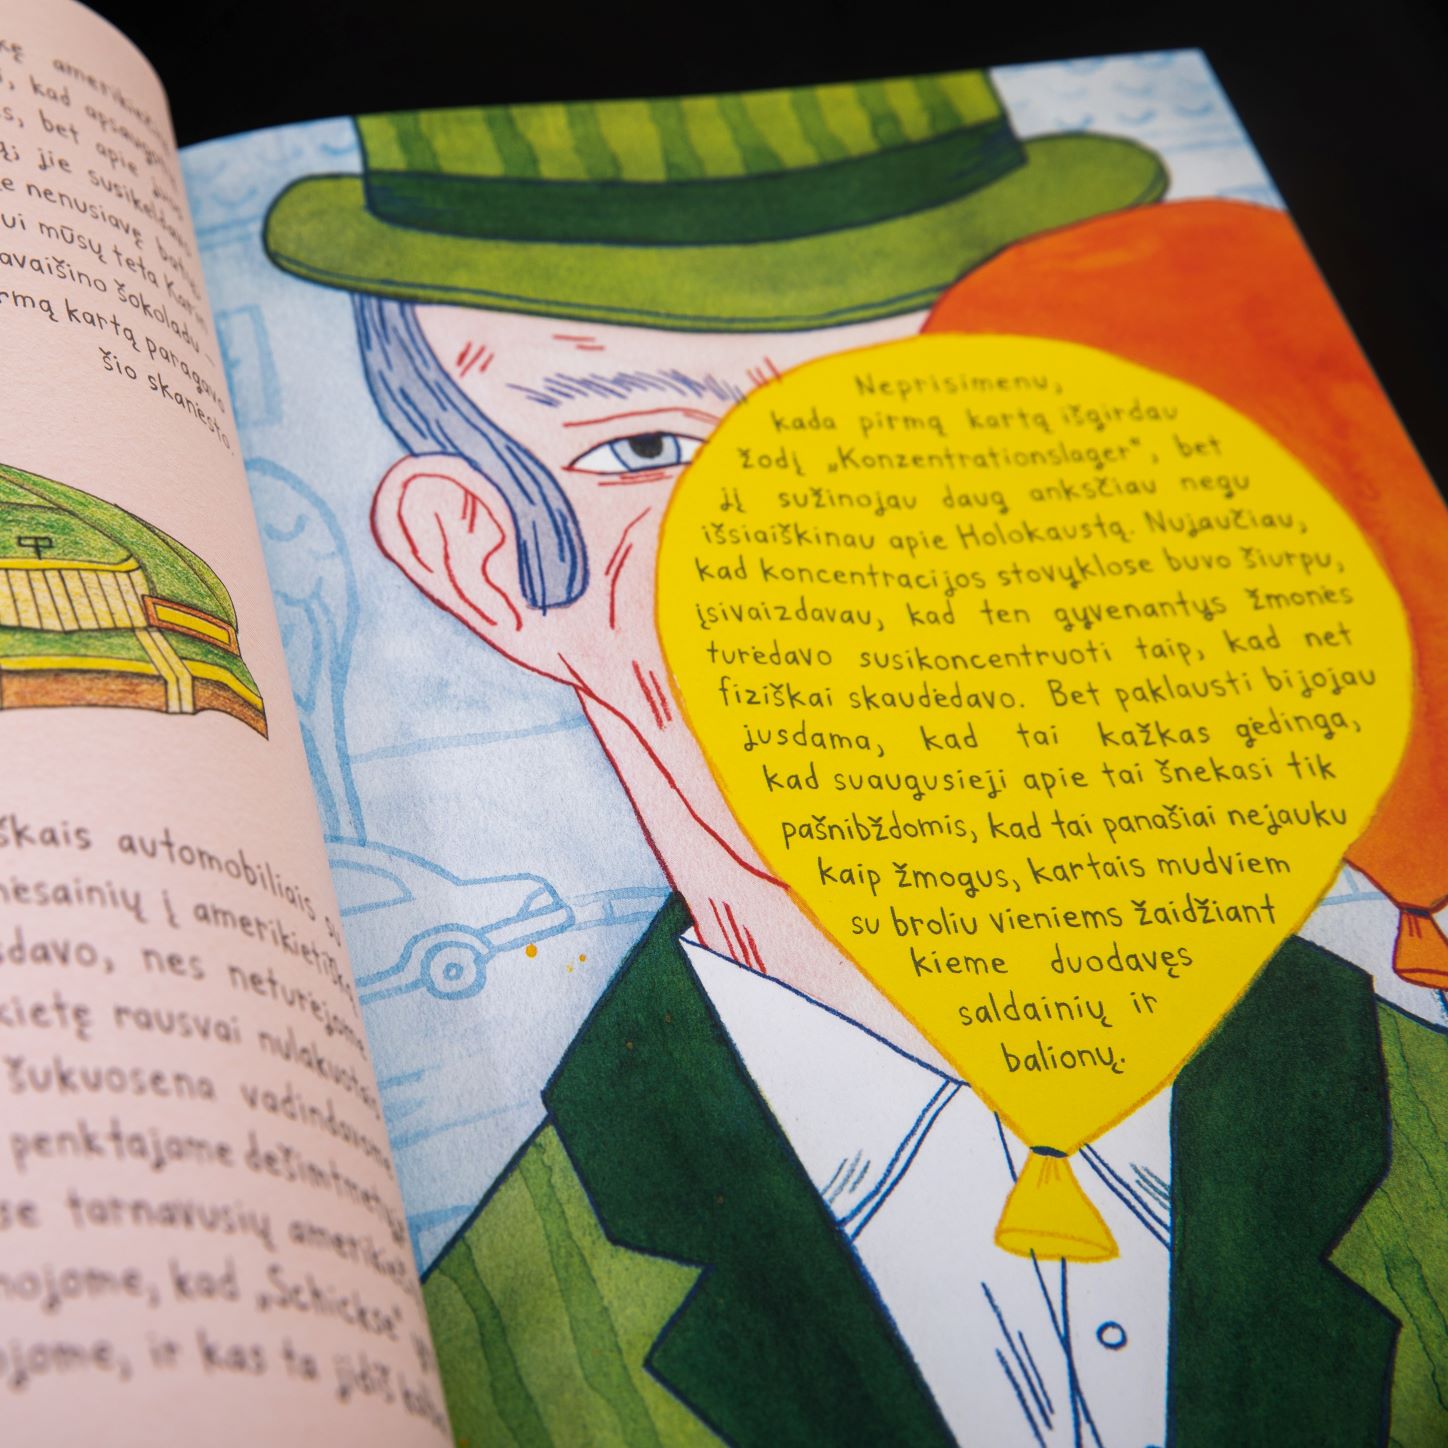 amerikiečių
kad apsaugotų
bet apie
jie susikeldavo
nenusiavę batų
mūsų teta Karin
šokoladu —
kartą paragavo
šio skanėsto.
automobiliais su
į amerikietišką
nes neturėjome
rausvai nulakuotais
šukuosena vadindavome
penktajame dešimtmetyje
tarnavusių
kad „Schickse“
ir kas ta jidiš
Neprisimenu,
kada pirmą kartą išgirdau
žodį „Konzentrationslager“, bet
jį sužinojau daug anksčiau negu
išsiaiškinau apie Holokaustą. Nujaučiau,
kad koncentracijos stovyklose buvo šiurpu,
įsivaizdavau, kad ten gyvenantys žmonės
turėdavo susikoncentruoti taip, kad net
fiziškai skaudėdavo. Bet paklausti bijojau
jusdama, kad tai kažkas gėdinga,
kad suaugusieji apie tai šnekasi tik
pašnibždomis, kad tai panašiai nejauku
kaip žmogus, kartais mudviem
su broliu vieniems žaidžiant
kieme duodavęs
saldainių ir
balionų.